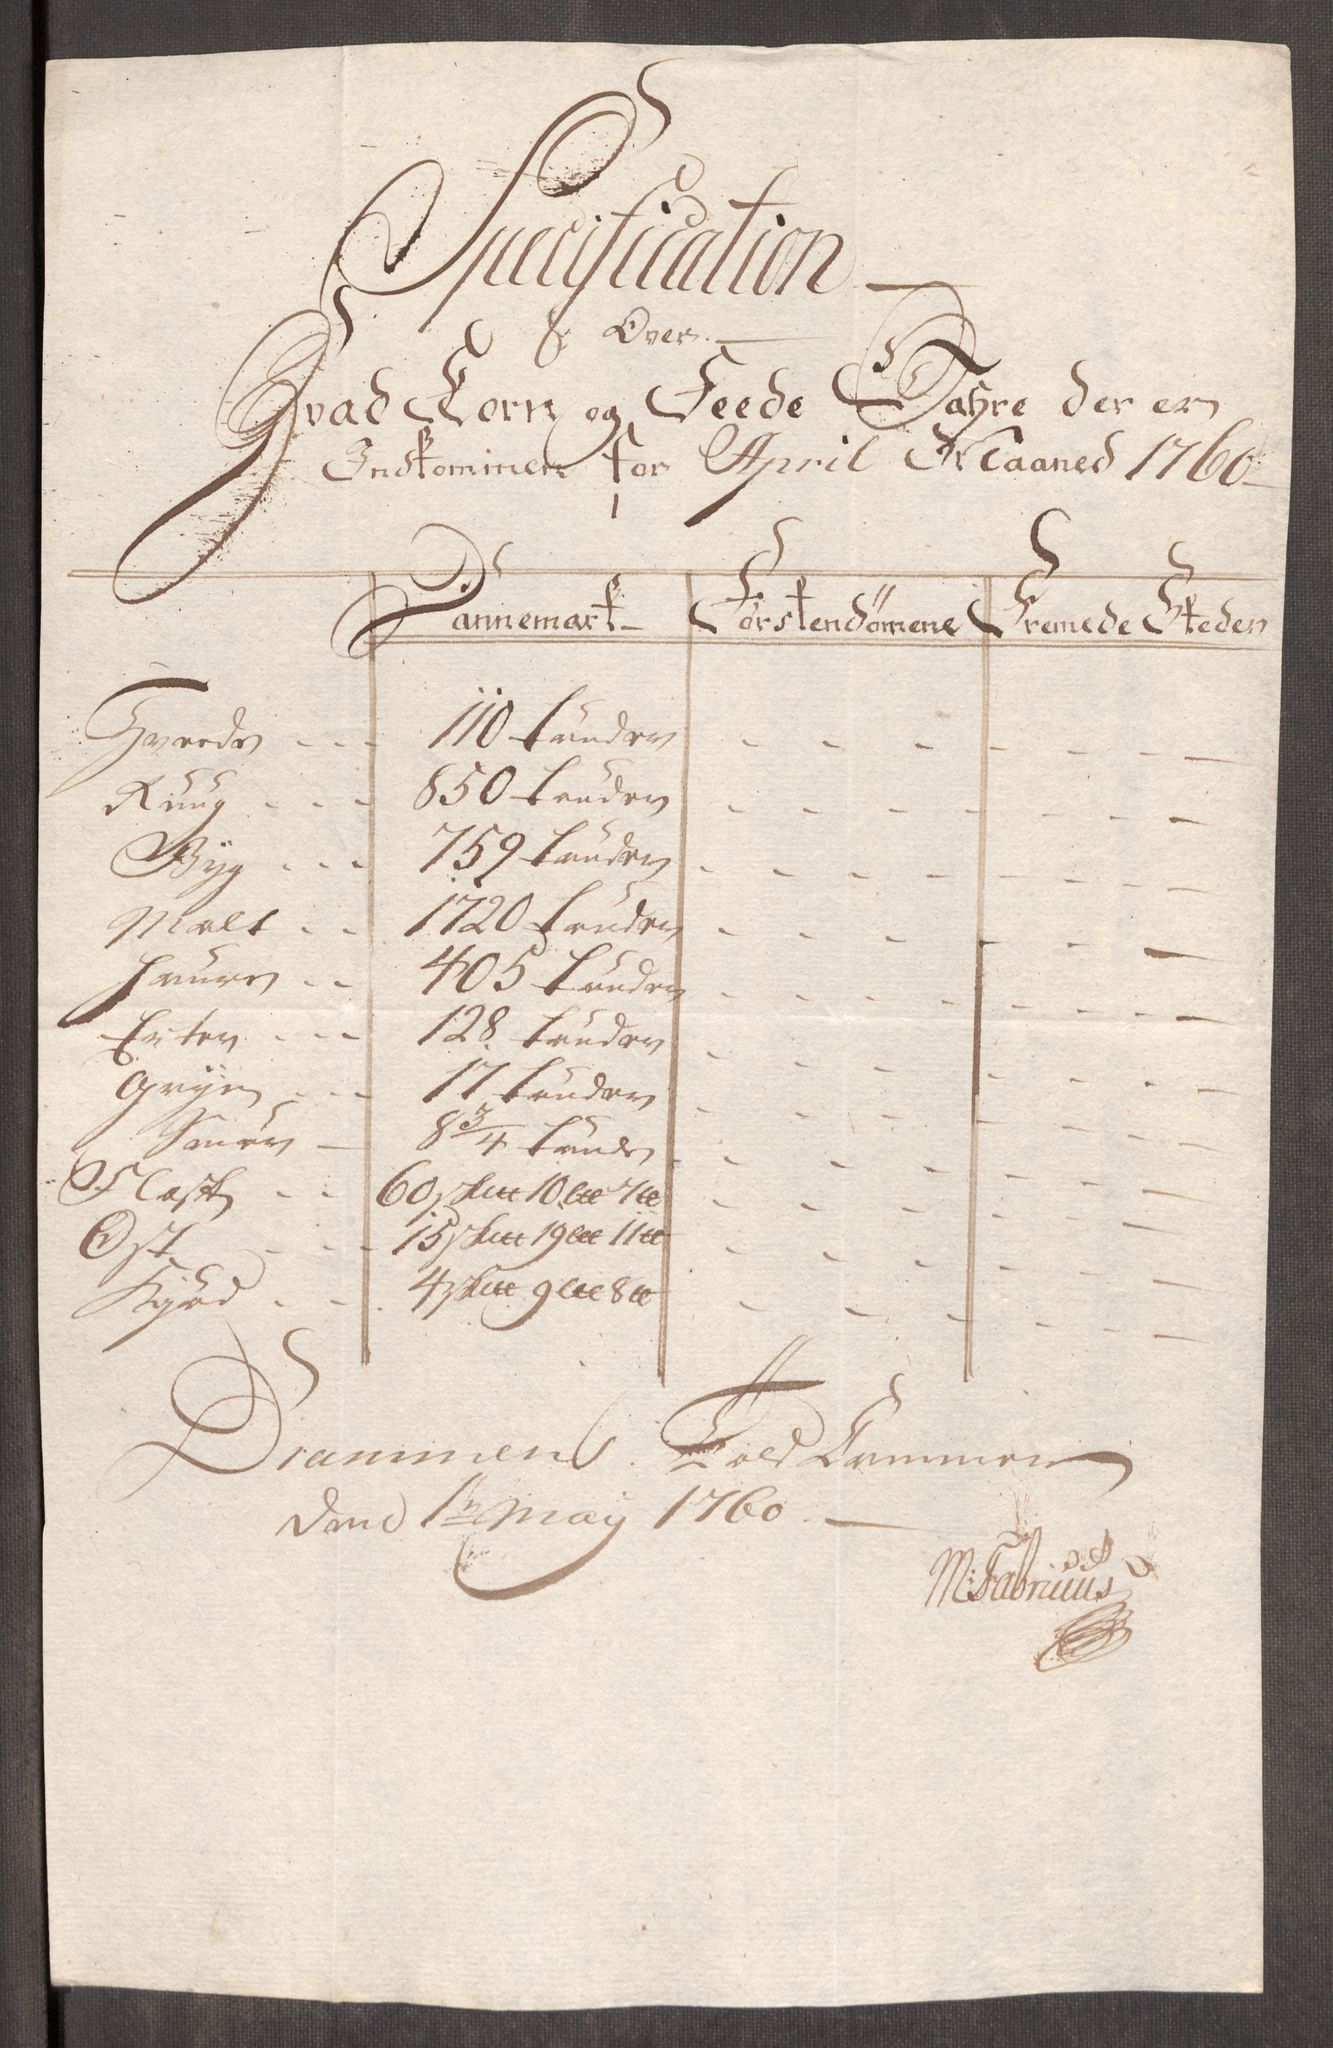 Specification
Over
Hvad Korn og Feede Wahre der er
Indkommen for April Maaned 1760
Dannemark Förstendömene Fremede Steder
Hvede - - - 110 tønder - - - - - - -
Rüug - - - 850 tønder - - - - - - -
Byg - - - 759 tønder - - - - - - -
Malt - - 1720 tønder - - - - -
Haure - - 405 tønder - - - - - - -
Erter - - - 128 tønder - - - - - - -
Gryn - - - 17 tønder - - - - - - -
Smør - 8 3/4 tønde - - - - - - -
Flesk - - 60 sk℔ 10 l℔ 7 ℔ - - - - - - -
Ost - - - 15 sk℔ 19 l℔ 11 ℔ - - - - - - -
Kjød - - 4 sk℔ 9 l℔ 8 ℔ - - - - - - -
Drammens Told Cammer
dend 1te May 1760
M: Fabritius